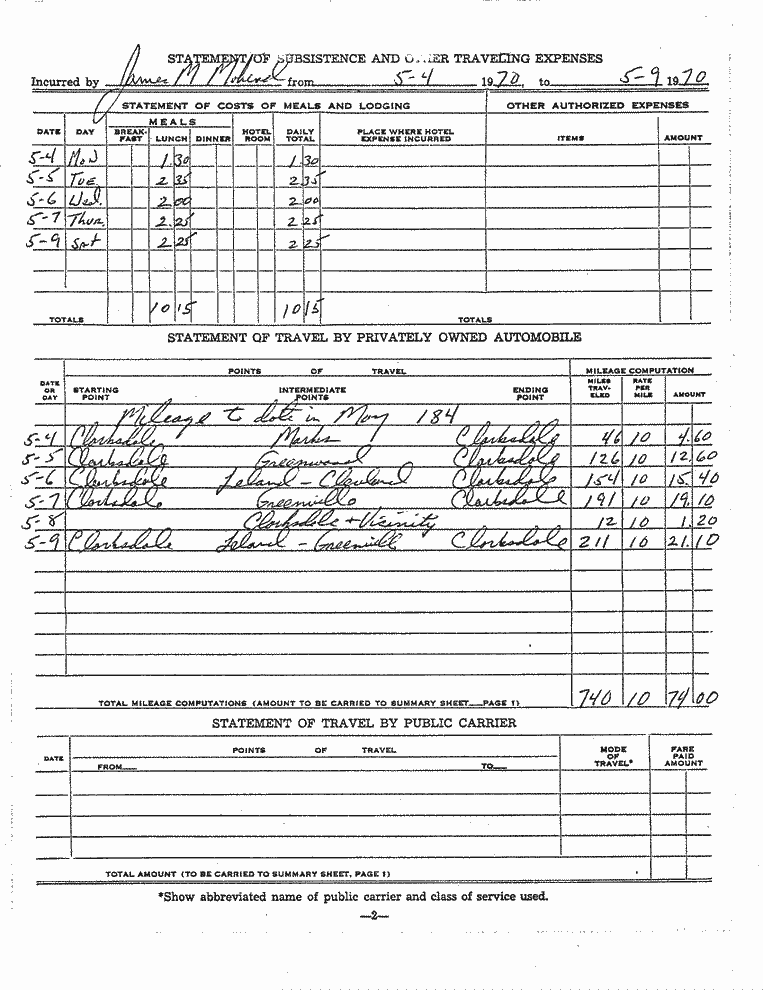 STATEMENT OF SUBSISTENCE AND OTHER TRAVELING EXPENSES
Incurred by James M Mohead from 5-4 1970, to 5-9 1970
STATEMENT OF COSTS OF MEALS AND LODGING OTHER AUTHORIZED EXPENSES
DATE DAY MEALS BREAK-FAST LUNCH DINNER HOTEL ROOM DAILY TOTAL PLACE WHERE HOTEL EXPENSE INCURRED ITEMS AMOUNT
5-4 Mon 1.30 1.30
5-5 Tue. 2 35 2 35
5-6 Wed. 2 00 2 00
5-7 Thur. 2.25 2 25
5-9 Sat 2 25 2 25
TOTALS 10 15 10 15 TOTALS
STATEMENT OF TRAVEL BY PRIVATELY OWNED AUTOMOBILE
POINTS OF TRAVEL MILEAGE COMPUTATION
DATE OR DAY STARTING POINT INTERMEDIATE POINTS ENDING POINT MILES TRAV-ELED RATE PER MILE AMOUNT
Mileage to date in May 184
5-4 Clarksdale Marks Clarksdale 46 10 4.60
5-5 Clarksdale Greenwood Clarksdale 126 10 12.60
5-6 Clarksdale Leland - Cleveland Clarksdale 154 10 15.40
5-7 Clarksdale Greenville Clarksdale 191 10 19.10
5-8 Clarksdale + Vicinity 12 10 1.20
5-9 Clarksdale Leland - Greenville Clarksdale 211 10 21.10
TOTAL MILEAGE COMPUTATIONS (AMOUNT TO BE CARRIED TO SUMMARY SHEET PAGE 1) 740 10 74.00
STATEMENT OF TRAVEL BY PUBLIC CARRIER
DATE POINTS OF TRAVEL MODE OF TRAVEL* FARE PAID AMOUNT
FROM TO
TOTAL AMOUNT (TO BE CARRIED TO SUMMARY SHEET, PAGE 1)
*Show abbreviated name of public carrier and class of service used.
—2—